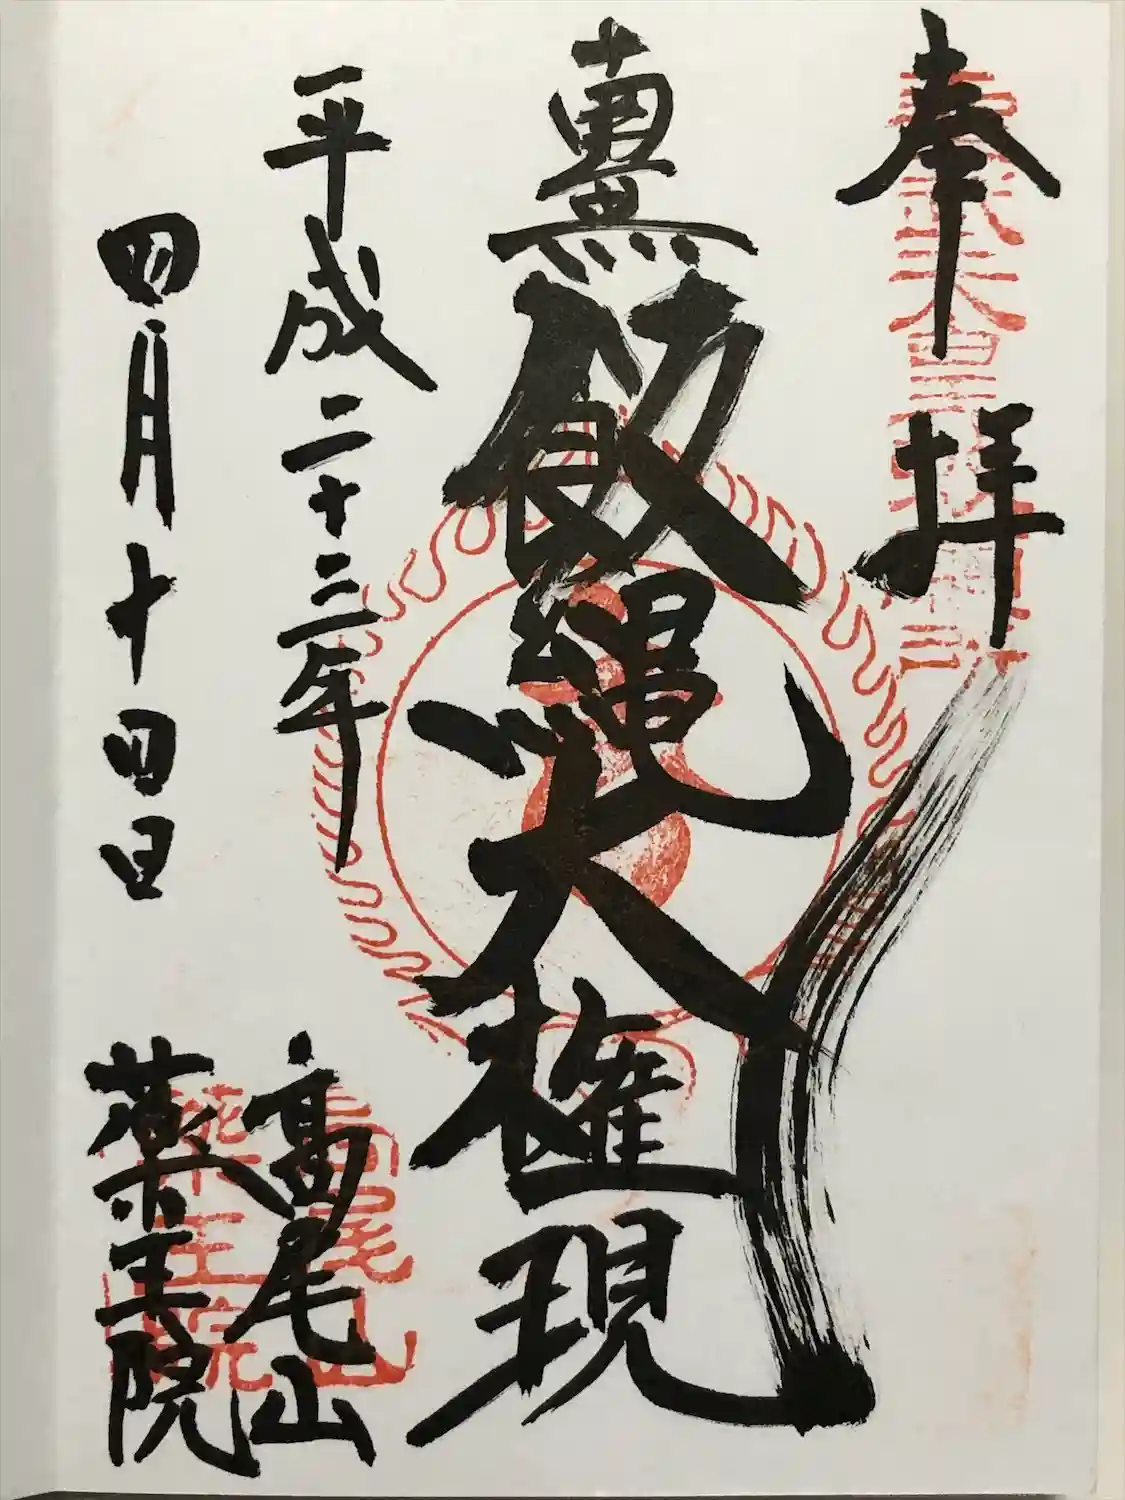 奉拝
飯縄大権現
平成二十三年
四月十四日
高尾山
薬王院
高尾山
薬王院